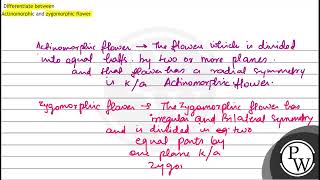 Differentiate between
Actinomorphic and zygomorphic flower.
Actinomorphic flower → The flower which is divided
into equal halfs. by two or more planes.
and that flower has a radial symmetry
is k/a Actinomorphic flower.
Zygomorphic flower → The Zygomorphic flower has
irregular and Bilateral Symmetry
and is divided in two
equal parts by
one plane k/a
Zygo
PW